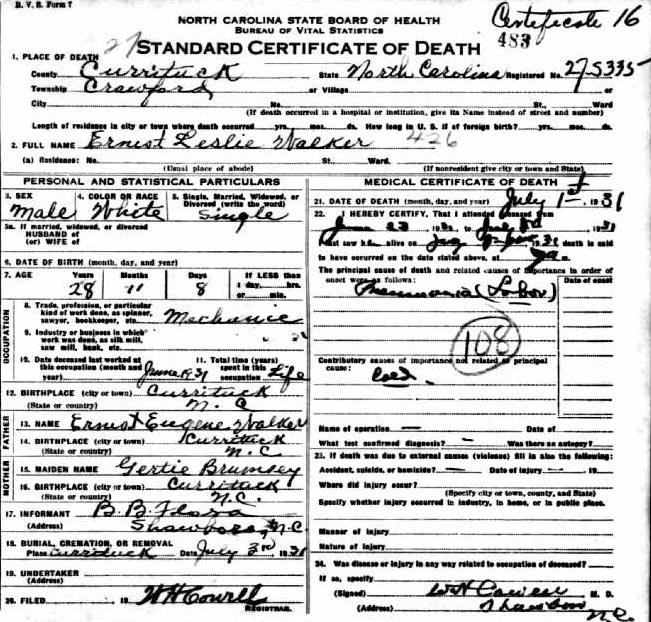 B. V. S. Form 7
NORTH CAROLINA STATE BOARD OF HEALTH
BUREAU OF VITAL STATISTICS
Certificate 16
483
27
STANDARD CERTIFICATE OF DEATH
1. PLACE OF DEATH
County Currituck State North Carolina Registered No. 27-5335
Township Crawford or Village or
City No. St., Ward
(If death occurred in a hospital or institution, give its Name instead of street and number)
Length of residence in city or town where death occurred yrs. mos. ds. How long in U. S. if of foreign birth? yrs. mos. ds.
2. FULL NAME Ernest Leslie Walker 426
(a) Residence: No. St. Ward.
(Usual place of abode) (If nonresident give city or town and State)
PERSONAL AND STATISTICAL PARTICULARS
3. SEX 4. COLOR OR RACE 5. Single, Married, Widowed, or Divorced (write the word)
Male White Single
5a. If married, widowed, or divorced
HUSBAND of
(or) WIFE of
6. DATE OF BIRTH (month, day, and year)
7. AGE Years Months Days If LESS than
28 11 8 1 day, hrs.
or min.
OCCUPATION
8. Trade, profession, or particular
kind of work done, as spinner,
sawyer, bookkeeper, etc. Mechanic
9. Industry or business in which
work was done, as silk mill,
saw mill, bank, etc.
10. Date deceased last worked at
this occupation (month and
year) June 1931
11. Total time (years)
spent in this
occupation Life
12. BIRTHPLACE (city or town) Currituck
(State or country) N.C.
FATHER
13. NAME Ernest Eugene Walker
14. BIRTHPLACE (city or town) Currituck
(State or country) N.C.
MOTHER
15. MAIDEN NAME Gertie Brumsey
16. BIRTHPLACE (city or town) Currituck
(State or country) N.C.
17. INFORMANT B. B. Flora
(Address) Shawboro, N.C.
18. BURIAL, CREMATION, OR REMOVAL
Place Currituck Date July 3rd, 1931
19. UNDERTAKER
(Address)
20. FILED 19 WH Cowell
REGISTRAR.
MEDICAL CERTIFICATE OF DEATH
21. DATE OF DEATH (month, day, and year) July 1st 1931
22. I HEREBY CERTIFY, That I attended deceased from
June 23 to July
I last saw h alive on 1931 death is said
to have occurred on the date stated above, at m.
The principal cause of death and related causes of importance in order of
onset were as follows: Date of onset
Pneumonia (Lobar)
108
Contributory causes of importance not related to principal
cause:
Cold
Name of operation — Date of
What test confirmed diagnosis? — Was there an autopsy?
23. If death was due to external causes (violence) fill in also the following:
Accident, suicide, or homicide? — Date of injury — 19
Where did injury occur?
(Specify city or town, county, and State)
Specify whether injury occurred in industry, in home, or in public place.
Manner of injury
Nature of injury
24. Was disease or injury in any way related to occupation of deceased?
If so, specify
(Signed) WH Cowell M. D.
(Address) Shawboro N.C.